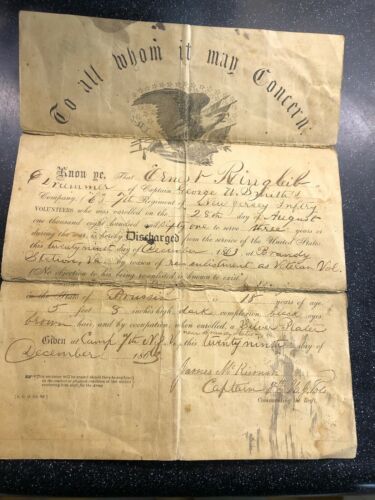 To all whom it may Concern;
Know ye, That Ernst Ringleib
a Drummer of Captain George W.
Company, "C" 7th Regiment of New Jersey Infty
VOLUNTEERS who was enrolled on the 28th day of August
one thousand eight hundred and Sixty one to serve three years or
during the war, is hereby Discharged from the service of the United States
this twenty ninth day of December, 1863, at Brandy
Station, Va by reason of reenlistment as Veteran Vol.
(No objection to his being reenlisted is known to exist.)
in the State of Prussia, is 18 years of age,
5 feet inches high, dark complexion, black eyes,
brown hair, and by occupation, when enrolled, a Silver Plater
Given at Camp 7th N.J. Vols this twenty ninth day of
December 1863
James McKiernan
Captain 7th N.J. Vols
Commanding the Regt.